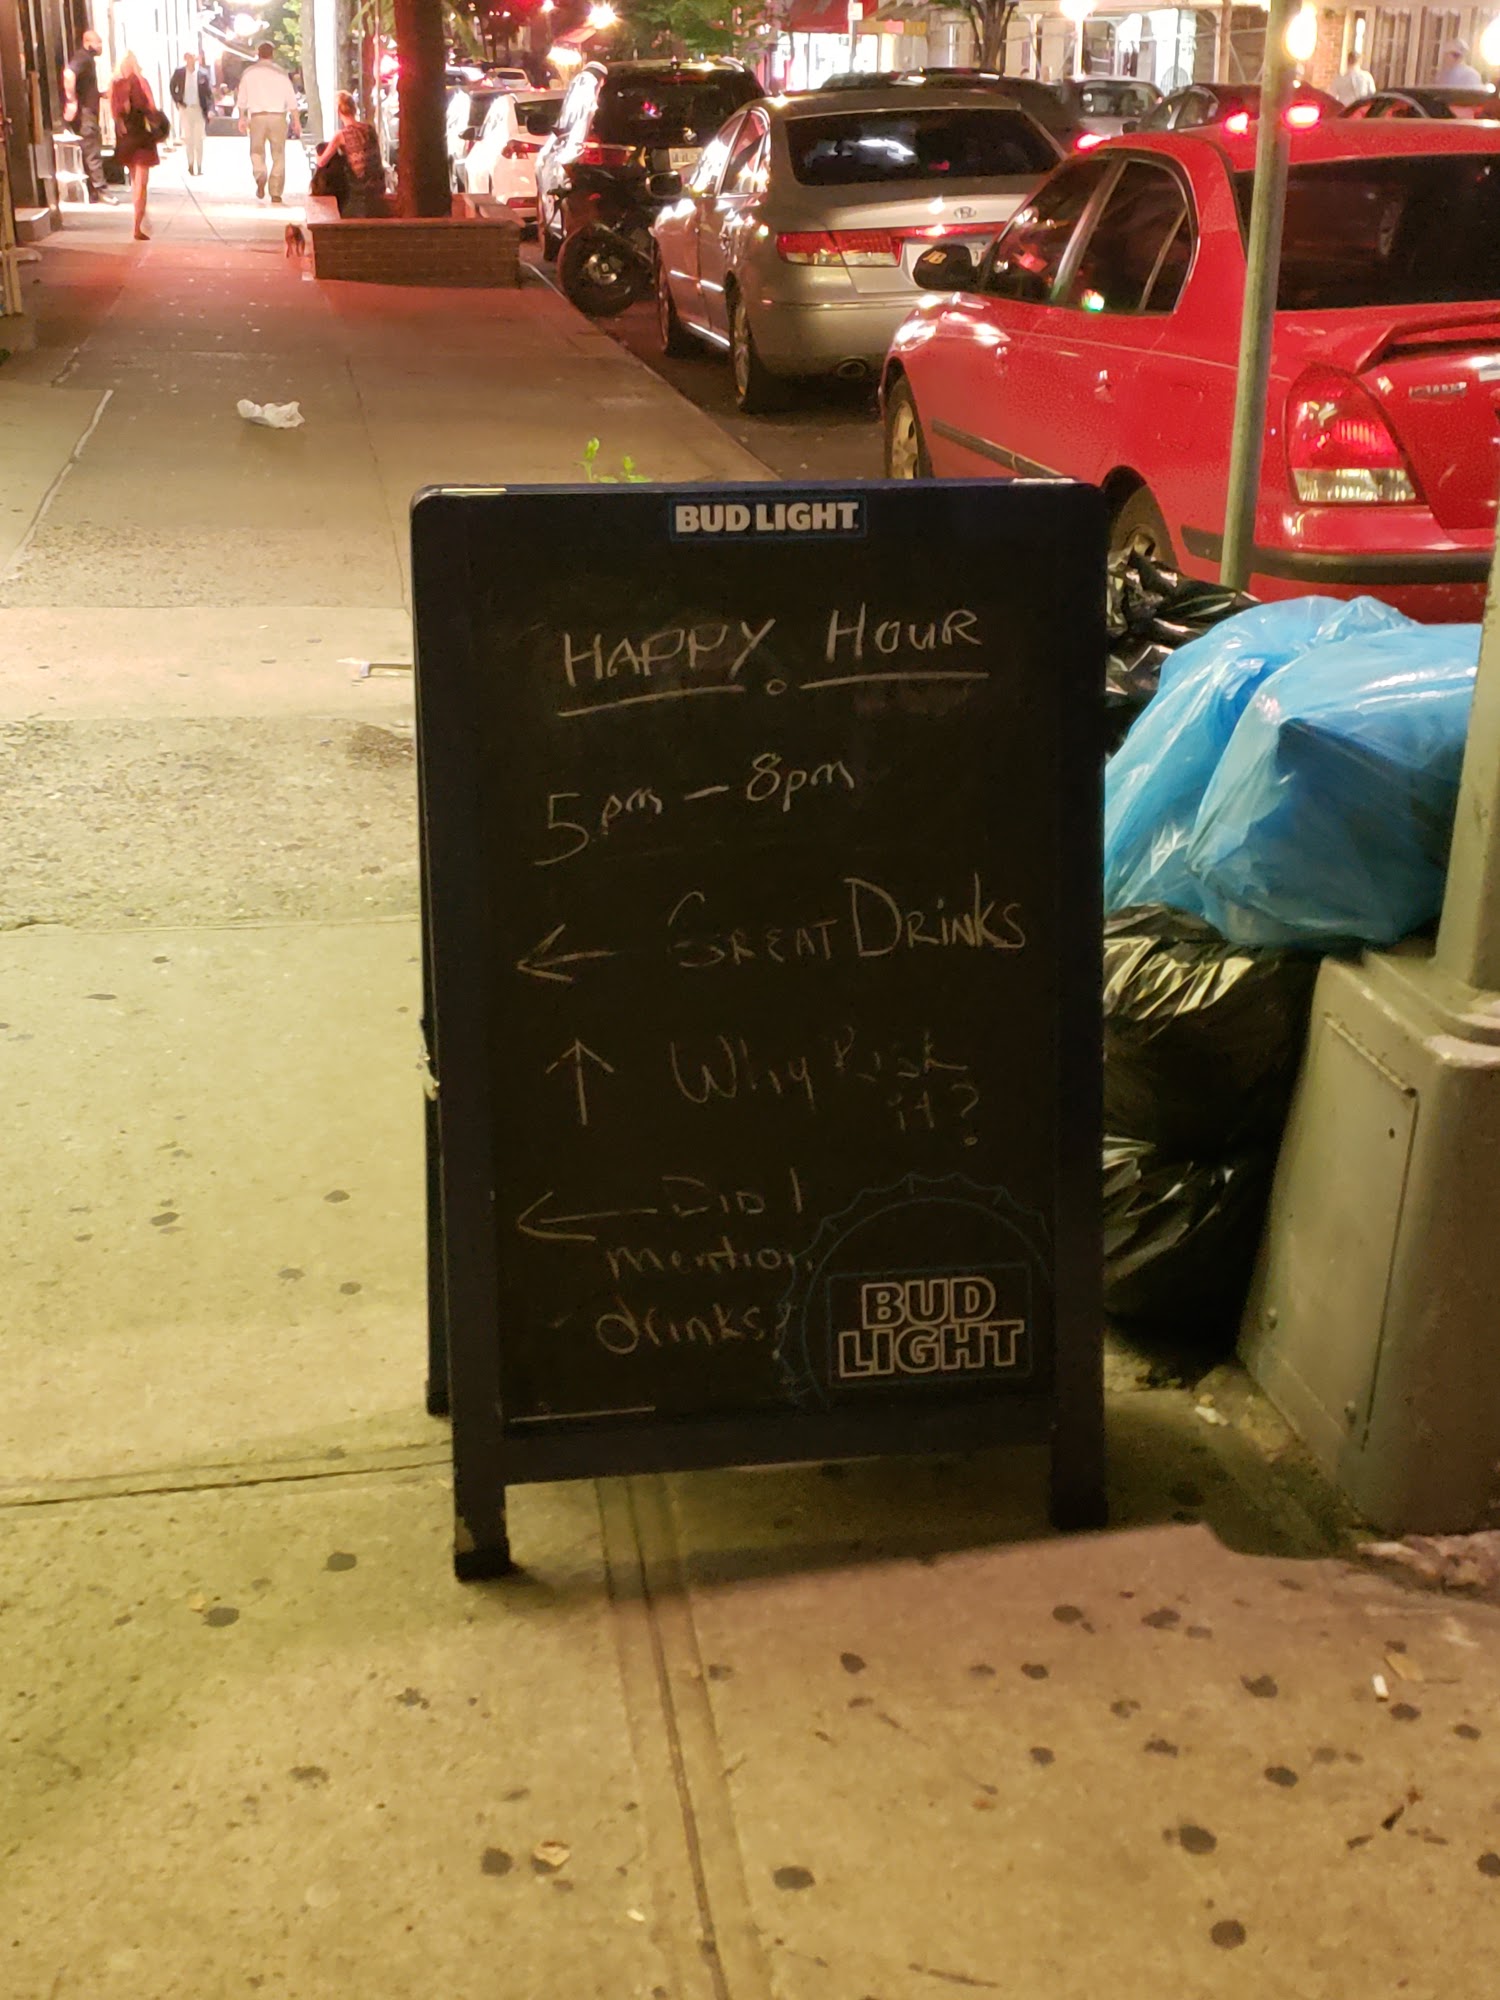 BUD LIGHT
HAPPY HOUR
5pm - 8pm
← GREAT DRINKS
↑ Why Risk
it?
← DID I
mention
drinks?
BUD
LIGHT